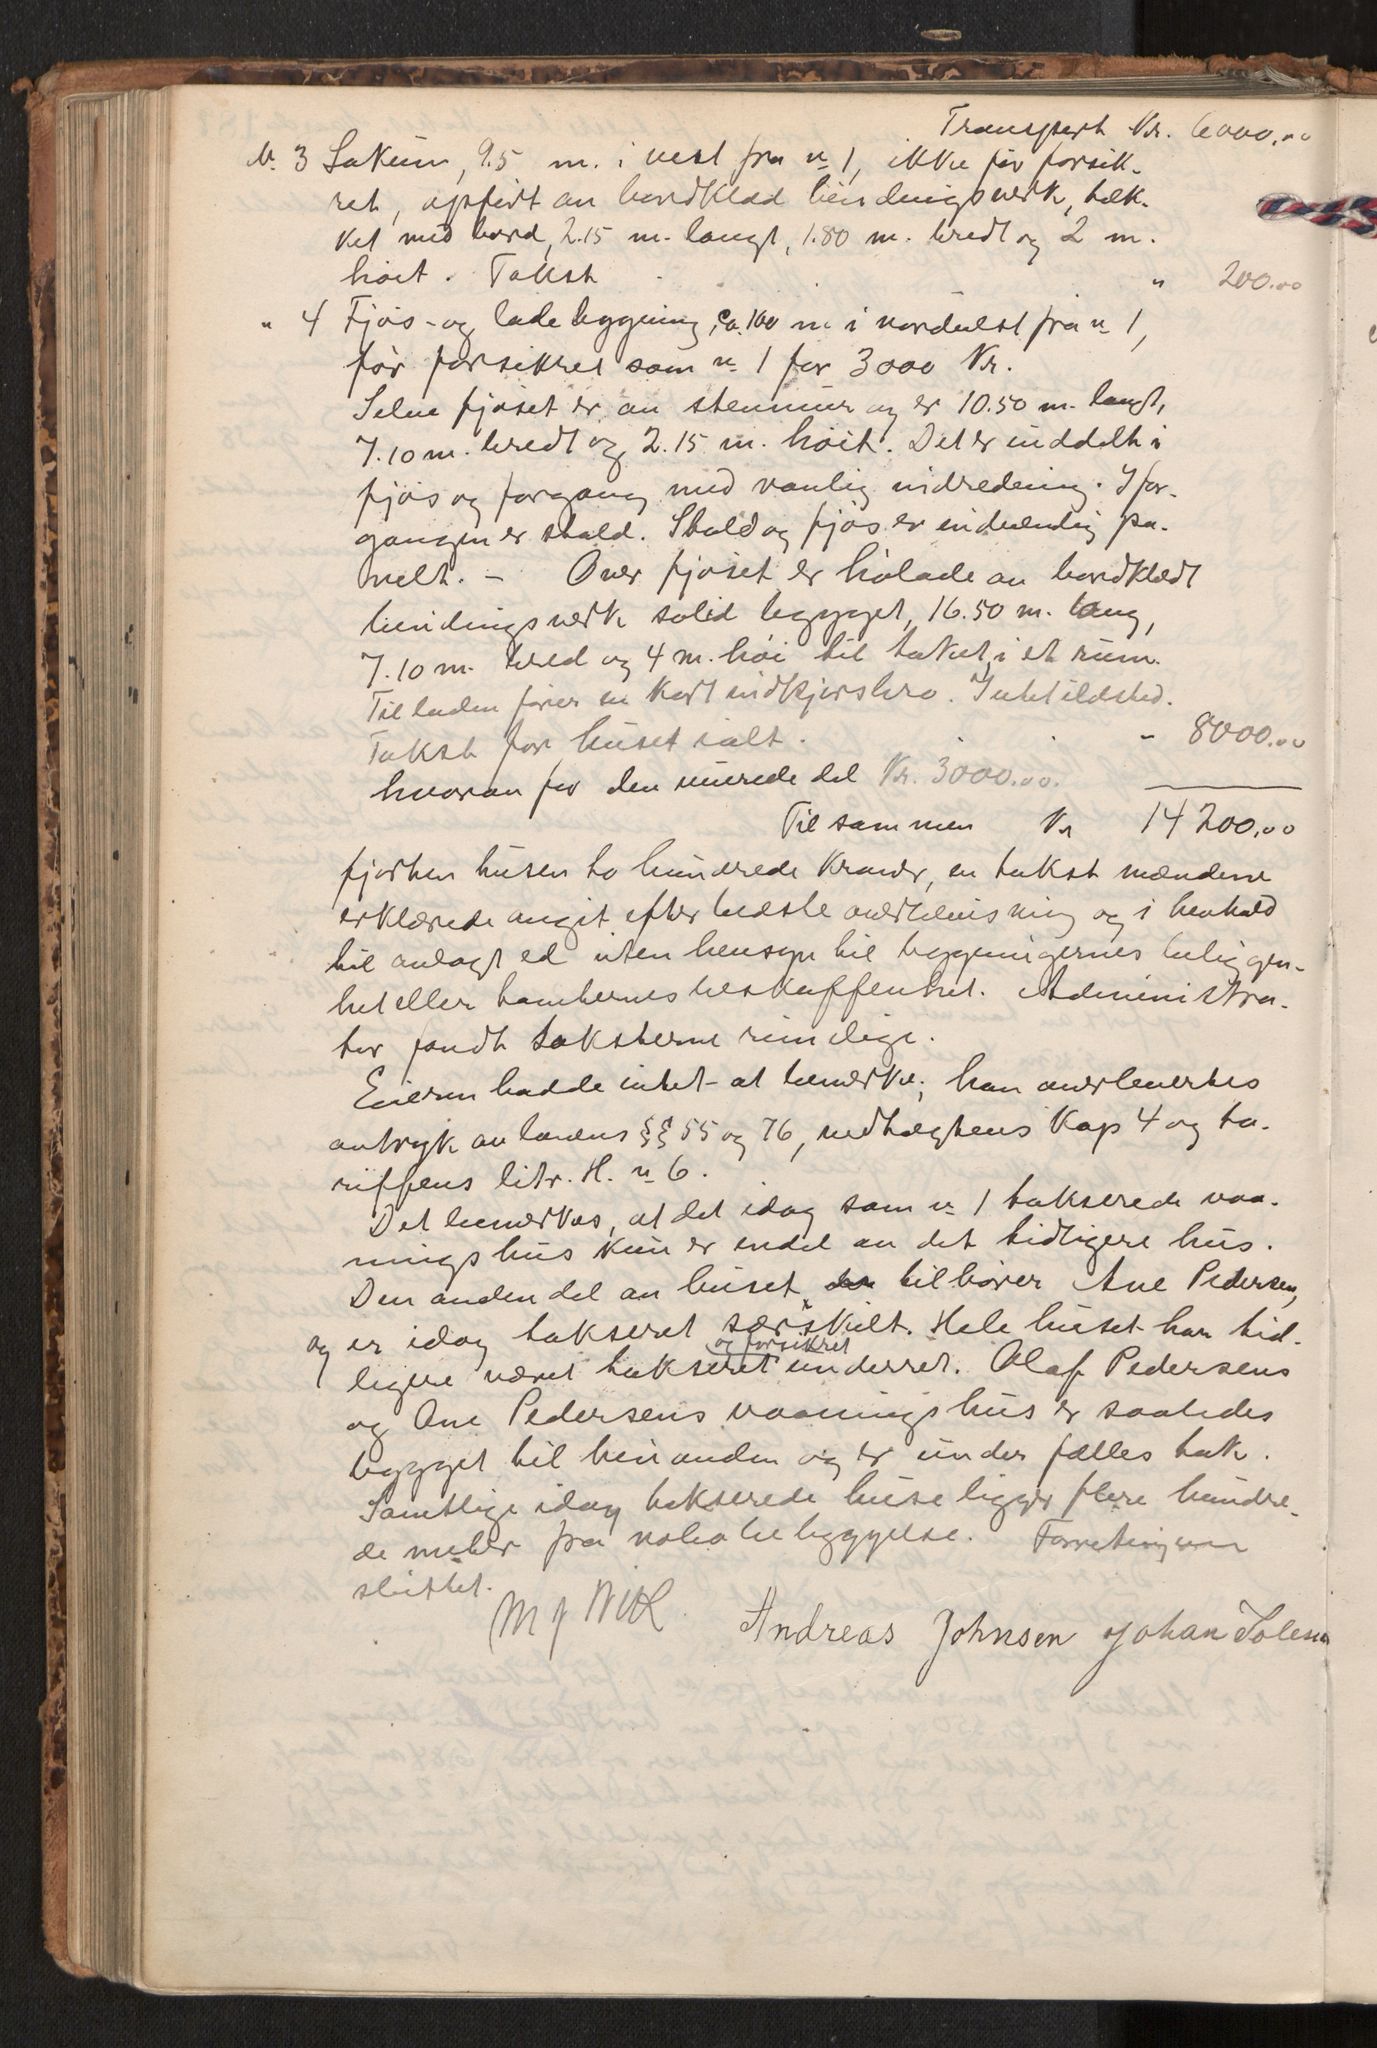 Transport Kr. 6000.00
N. 3 Lokum, 9.5 m. i vest fra n 1, ikke før forsik-
ret, opført av bordklæd bindingsverk, tæk-
ket med bord, 2.15 m. langt, 1.80 m. bredt og 2 m.
høit. Takst " 200.00
" 4 Fjøs- og ladebygning, ca. 100 m i nordvest fra n 1,
før forsikret som n 1 for 3000 Kr.
Selve fjøset er av stenmur og er 10.50 m. langt,
7.10 m. bredt og 2.15 m. høit. Det er inddelt i
fjøs og forgang med vanlig indredning. I for-
gangen er stald. Stald og fjøs er indvendig pa-
nelt. - Over fjøset er høilade av bordklædt
bindingsverk solid bygget, 16.50 m. lang,
7.10 m. bred og 4 m. høi til taket, i et rum.
Til laden fører en kort indkjørsbro. Intet ildsted.
Takst for huset ialt. " 8000.00
hvorav for den murede del Kr. 3000.00.
Tilsammen Kr 14200.00
fjorten tusen to hundrede kroner, en takst mændene
erklærede avgit efter bedste overbevisning og i henhold
til avlagt ed uten hensyn til bygningernes beliggen-
het eller tomternes beskaffenhet. Administra-
tor fandt taksterne rimelige.
Eieren hadde intet at bemerke; han overlevertes
avtryk av lovens §§ 55 og 76, vedtægtens Kap 4 og ta-
riffens litr. H. n 6.
Det bemerkes, at det idag som n 1 takserede vaa-
ningshus kun er endel av det tidligere hus.
Den anden del av huset tilhører Ane Pedersen,
og er idag taksert særskilt. Hele huset har tid-
ligere været taksert og forsikret underret. Olaf Pedersens
og Ane Pedersens vaaningshus er saaledes
bygget til hinanden og er under fælles tak.
Samtlige idag takserede huse ligger flere hundre-
de meter fra nabobebyggelse. Forretning
sluttet.
Andreas Johnsen Johan